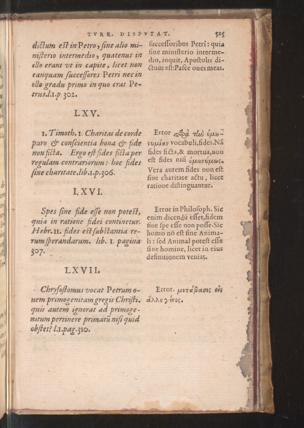 TVRR. DISPVTAT. 525
dictum est in Petro, sine alio mi-
nisterio intermedio, quatenus in
illo erant ve in capite, licet non
tanquam successores Petri nec in
illo gradu primo in quo erat Pe-
trus. l.1. p. 302.
LXV.
1. Timoth. 1. Charitas de corde
puro & conscientia bona & fide
non ficta. Ergo est fides ficta per
regulam contrariorum: hoc fides
sine charitate. lib. 1. p. 306.
LXVI.
Spes sine fide esse non potest,
quia in ratione fidei continetur.
Hebr. 11. fides est substantia re-
rum sperandarum. lib. 1. pagina
307.
LXVII.
Chrysostomus vocat Petrum o-
uem primogenitam gregis Christi,
quis autem ignorat ad primoge-
nitum pertinere primatū nisi quid
obstet? l.1. pag. 310.
successoribus Petri: quia
sine ministerio interme-
dio, inquit, Apostolis di-
ctum est: Pasce oues meas.
Error
vocabuli, fidei. Nā
fides ficta, & mortua, non
est fides nisi
Vera autem fides non est
sine charitate actu, licet
ratione distinguantur.
Error in Philosoph. Sic
enim dicendū esset, fidem
sine spe esse non posse. Sic
homo nō est sine Anima-
li: sed Animal potest esse
sine homine, licet in eius
definitionem veniat.
Error. μετάβασις εἰς
ἄλλο γένος.